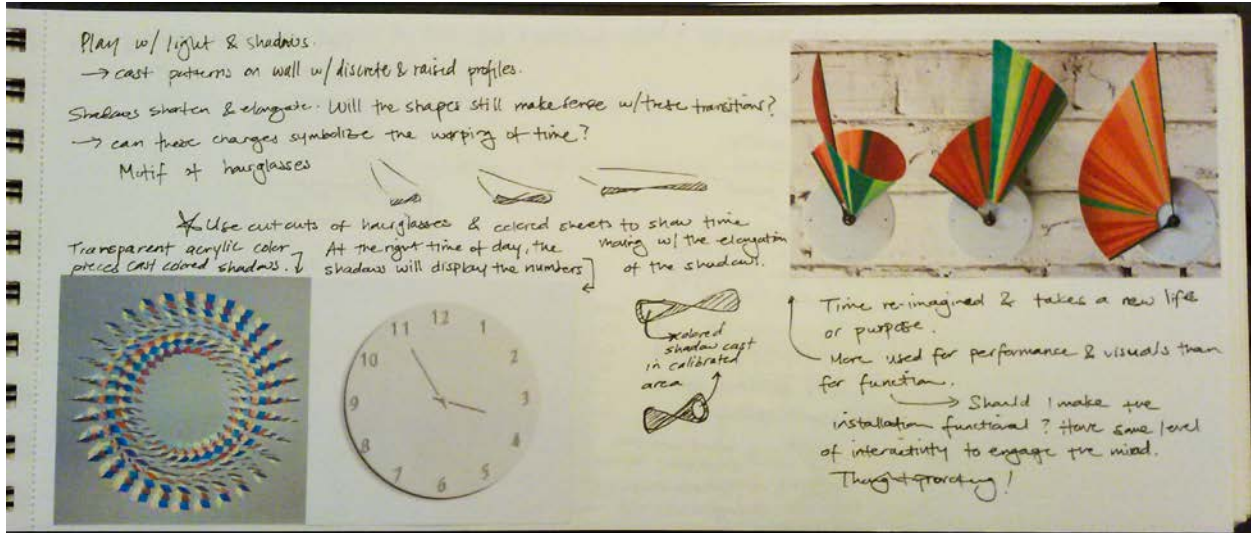 Play w/ light & shadows.
→ cast patterns on wall w/ discrete & raised profiles.
Shadows shorten & elongate. Will the shapes still make sense w/ these transitions?
→ can these changes symbolize the warping of time?
Motif of hourglasses
Use cutouts of hourglasses & colored sheets to show time
moving w/ the elongation
of the shadows.
Transparent acrylic color
pieces cast colored shadows.
At the right time of day, the
shadows will display the numbers
12
1
2
3
4
5
6
7
8
9
10
11
colored
shadow cast
in calibrated
area
Time re-imagined & takes a new life
or purpose.
More used for performance & visuals than
for function.
→ Should I make the
installation functional? Have some level
of interactivity to engage the mind.
Thought provoking!